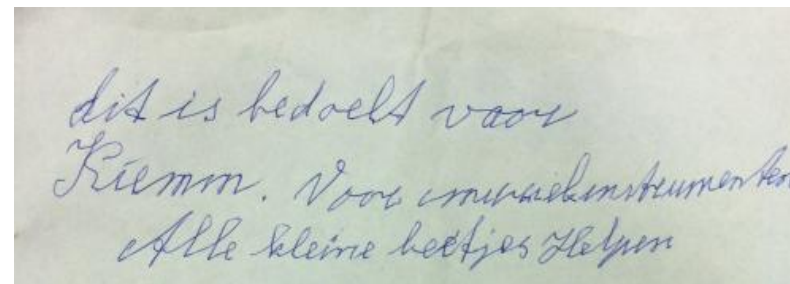 dit is bedoelt voor
Kiemm. Voor muziekinstrumenten
Alle kleine beetjes Helpen